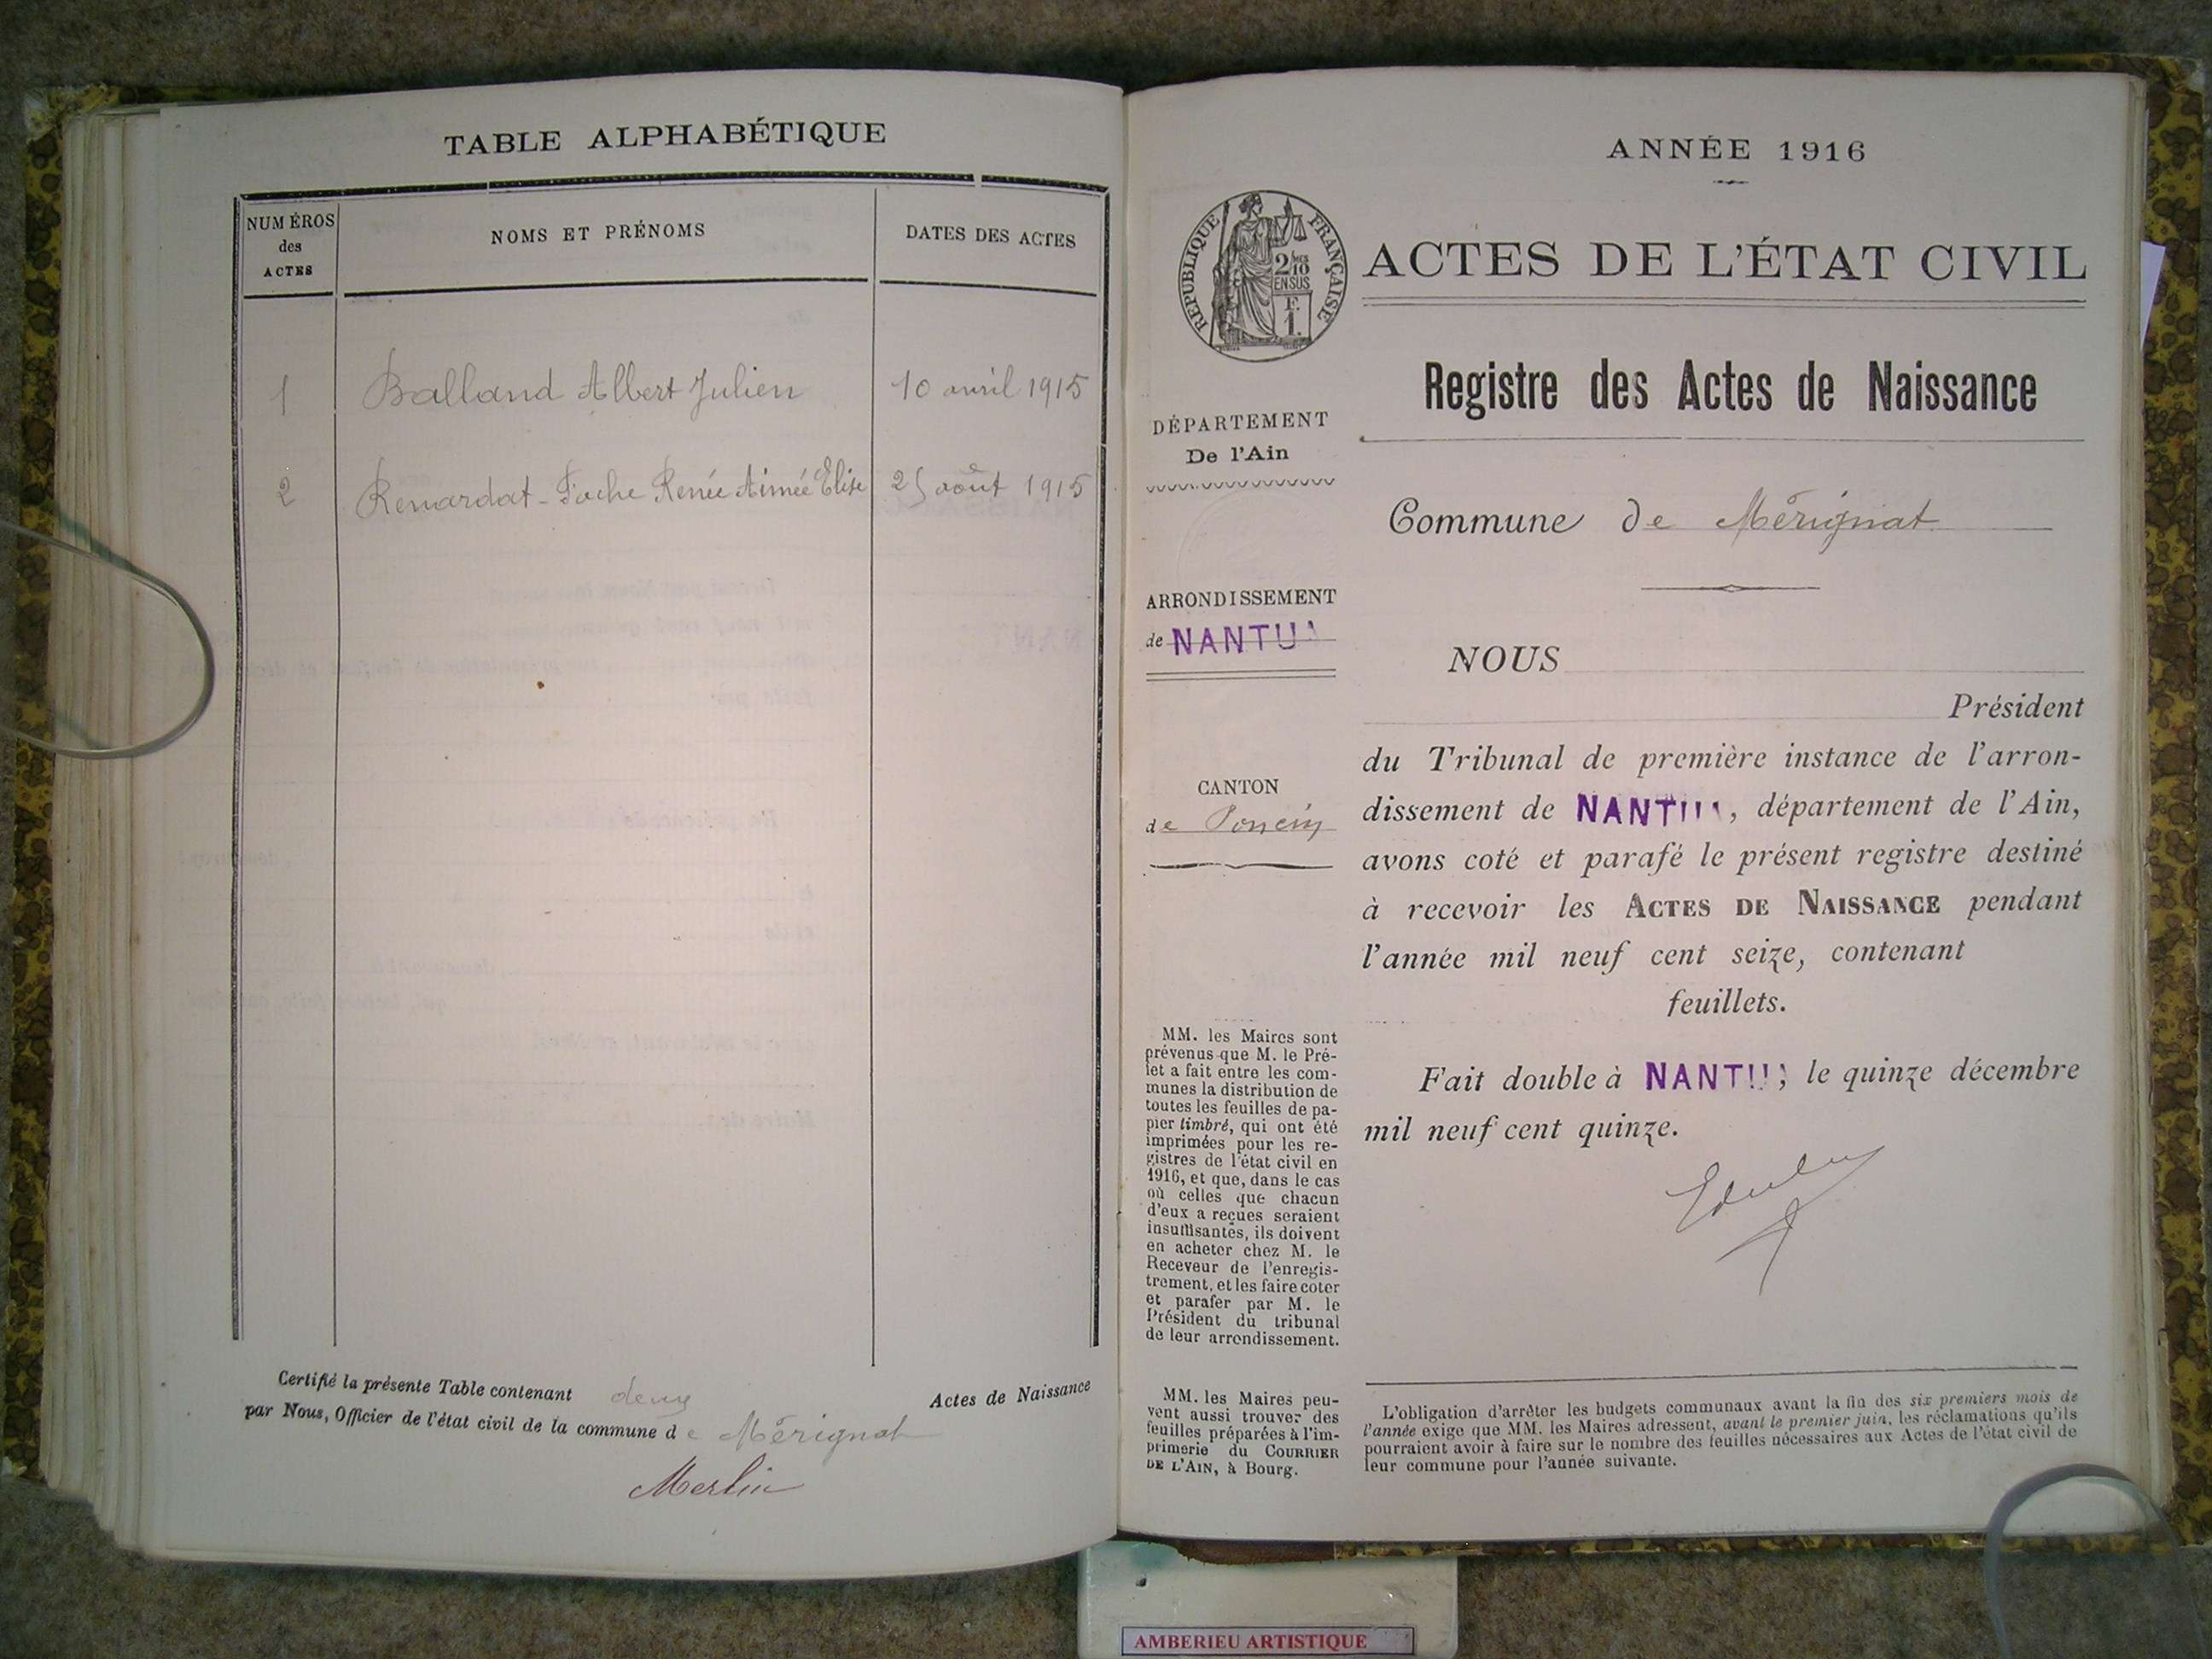 TABLE ALPHABÉTIQUE
NUMÉROS
des
ACTES
NOMS ET PRÉNOMS
DATES DES ACTES
1 Balland Albert Julien 10 avril 1915
2 Renardat-Fache Renée Aimée Elise 25 août 1915
Certifié la présente Table contenant deux Actes de Naissance
par Nous, Officier de l'état civil de la commune de Mérignat
Merlin
ANNÉE 1916
RÉPUBLIQUE FRANÇAISE
2/10
EN SUS
F.
1.
ACTES DE L'ÉTAT CIVIL
Registre des Actes de Naissance
DÉPARTEMENT
De l'Ain
Commune de Mérignat
ARRONDISSEMENT
de NANTUA
CANTON
de Poncin
NOUS
Président
du Tribunal de première instance de l'arron-
dissement de NANTUA, département de l'Ain,
avons coté et parafé le présent registre destiné
à recevoir les ACTES DE NAISSANCE pendant
l'année mil neuf cent seize, contenant
feuillets.
Fait double à NANTUA, le quinze décembre
mil neuf cent quinze.
MM. les Maires sont
prévenus que M. le Pré-
fet a fait entre les com-
munes la distribution de
toutes les feuilles de pa-
pier timbré, qui ont été
imprimées pour les re-
gistres de l'état civil en
1916, et que, dans le cas
où celles que chacun
d'eux a reçues seraient
insuffisantes, ils doivent
en acheter chez M. le
Receveur de l'enregis-
trement, et les faire coter
et parafer par M. le
Président du tribunal
de leur arrondissement.
MM. les Maires peu-
vent aussi trouver des
feuilles préparées à l'im-
primerie du COURRIER
DE L'AIN, à Bourg.
L'obligation d'arrêter les budgets communaux avant la fin des six premiers mois de
l'année exige que MM. les Maires adressent, avant le premier juin, les réclamations qu'ils
pourraient avoir à faire sur le nombre des feuilles nécessaires aux Actes de l'état civil de
leur commune pour l'année suivante.
AMBERIEU ARTISTIQUE